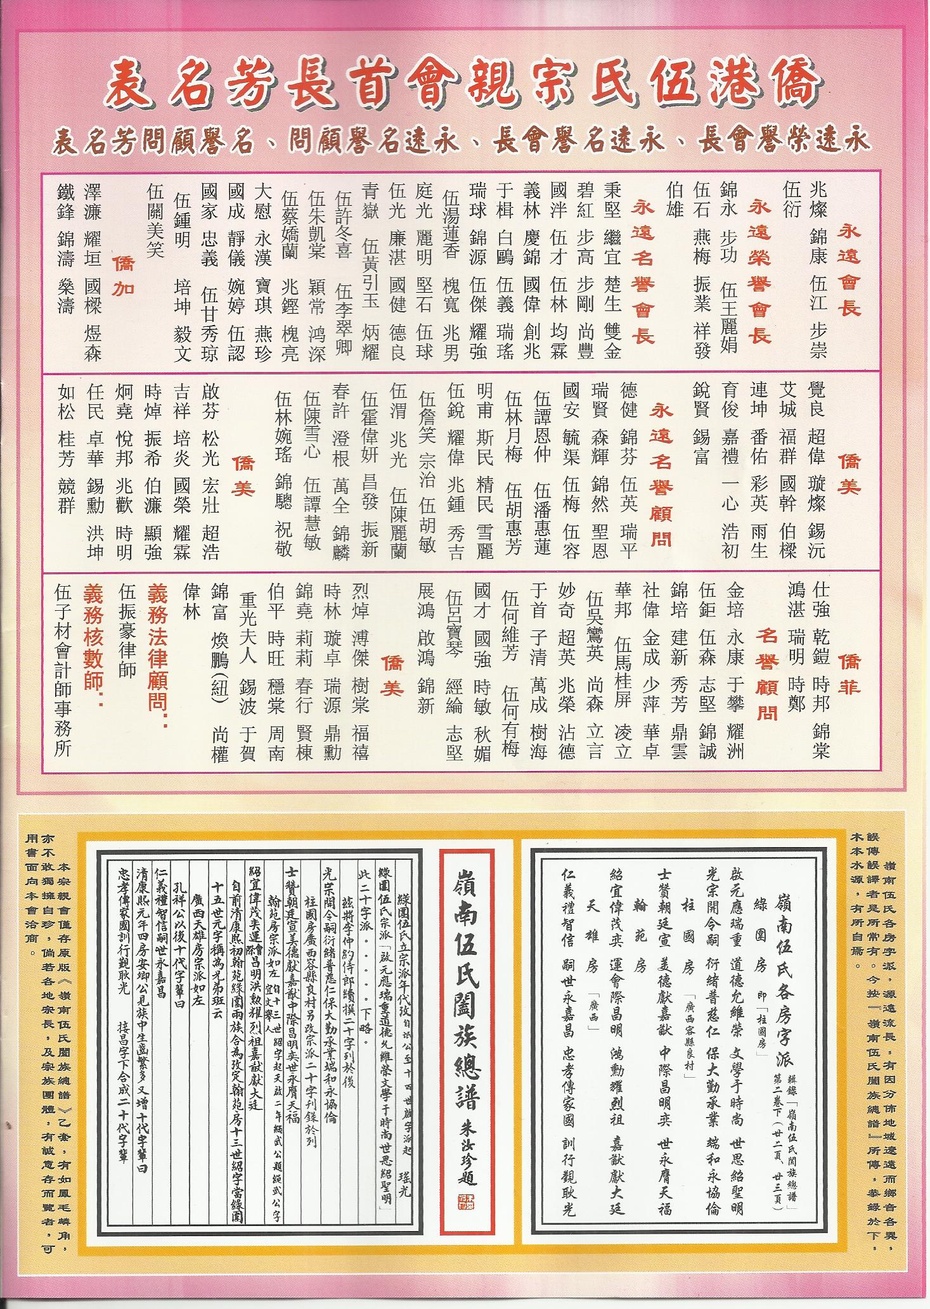 僑港伍氏宗親會首長芳名表
永遠榮譽會長、永遠名譽會長、永遠名譽顧問、名譽顧問芳名表
永遠會長
兆燦 錦康 伍江 步崇
伍衍
永遠榮譽會長
錦永 步功 伍王麗娟
伍石 燕梅 振業 祥發
伯雄
永遠名譽會長
秉堅 繼宜 楚生 雙金
碧紅 步高 步剛 尚豐
國泮 伍才 伍林 均霖
義林 慶錦 國偉 創兆
于楫 白鷗 伍義 瑞瑤
瑞球 錦源 伍傑 耀強
伍湯蓮香 槐寬 兆男
庭光 麗明 堅石 伍球
伍光 廉湛 國健 德良
青嶽 伍黃引玉 炳耀
伍許冬喜 伍李翠卿
伍朱凱棠 穎常 鴻深
伍蔡嬌蘭 兆鏗 槐亮
大慰 永漢 寶琪 燕珍
國成 靜儀 婉婷 伍認
國家 忠義 伍甘秀琼
伍鍾明 培坤 毅文
伍關美笑
僑加
澤濂 耀垣 國樑 煜森
鐵鋒 錦濤 燊濤
僑美
覺良 超偉 璇燦 錫沅
艾城 福群 國幹 伯樑
連坤 番佑 彩英 雨生
育俊 嘉禮 一心 浩初
銳賢 錫富
永遠名譽顧問
德健 錦芬 伍英 瑞平
瑞賢 森輝 錦然 聖恩
國安 毓渠 伍梅 伍容
伍譚恩仲 伍潘惠蓮
伍林月梅 伍胡惠芳
明甫 斯民 精民 雪麗
伍銳 耀偉 兆鍾 秀吉
伍詹笑 宗治 伍胡敏
伍渭 兆光 伍陳麗蘭
伍霍偉妍 昌發 振新
春許 澄根 萬全 錦麟
伍陳雪心 伍譚慧敏
伍林婉瑤 錦驄 祝敬
僑美
啟芬 松光 宏壯 超浩
吉祥 培炎 國榮 耀霖
時焯 振希 伯濂 顯強
炯堯 悅邦 兆歡 時明
任民 卓華 錫勳 洪坤
如松 桂芳 競群
僑菲
仕強 乾鎧 時邦 錦棠
鴻湛 瑞明 時鄭
名譽顧問
金培 永康 于攀 耀洲
伍鉅 伍森 志堅 錦誠
錦培 建新 秀芳 鼎雲
社偉 金成 少萍 華卓
華邦 伍馬桂屏 凌立
伍吳鸞英 尚森 立言
妙奇 超英 兆榮 沾德
于首 子清 萬成 樹海
伍何維芳 伍何有梅
國才 國強 時敏 秋媚
伍呂寶琴 經綸 志堅
展鴻 啟鴻 錦新
僑美
烈焯 溥傑 樹棠 福禧
時林 璇卓 瑞源 鼎勳
錦堯 莉莉 春行 賢棟
伯平 時旺 穩棠 周南
重光夫人 錫波 于賀
錦富 煥鵬(紐) 尚權
偉林
義務法律顧問：
伍振豪律師
義務核數師：
伍子材會計師事務所
嶺南伍氏各房字派，源遠流長，有因分佈地域遼遠而鄉音各異，
誤傳誤譯者是所常有。今按「嶺南伍氏闔族總譜」所傳，恭錄於下，
木本水源，有所自焉。
嶺南伍氏各房字派 輯錄「嶺南伍氏闔族總譜」第二卷下（廿二頁、廿三頁）
綠圍房 即「柱國房」
啟元應瑞重 道德允維榮 文學于時尚 世思紹聖明
光宗開令嗣 衍緒普慈仁 保大勤承業 端和永協倫
柱國房 「廣西容縣良村」
士贊朝廷宣 美德獻嘉猷 中際昌明奕 世永膺天福
翰苑房
紹宜偉茂奕 運會際昌明 鴻勳耀烈祖 嘉猷獻大廷
天雄房 「廣西」
仁義禮智信 嗣世永嘉昌 忠孝傳家國 訓行覲耿光
嶺南伍氏闔族總譜 朱汝珍題
綠圍伍氏立宗派年代攷 自派公至十四世啟字派起 瑤光
綠圍伍氏宗派「啟元應瑞重道德允維榮文學于時尚世思紹聖明」
此二十字派．．．．．下略。
茲將孝仲約侍郎續撰二十字列於後
光宗開令嗣衍緒普慈仁保大勤承業端和永協倫
柱國房廣西容縣良村另改宗派二十字刊錄於列
士贊朝廷宣美德獻嘉猷中際昌明奕世永膺天福
紹宜偉茂奕運會際昌明洪勳耀烈祖嘉猷獻大廷
自前清康熙初翰苑綠圍兩族合為改定翰苑房十三世紹字當綠圍
十五世元字稱為兄弟班云
廣西天雄房宗派如左
孔祥公以後十代字輩曰
仁義禮智信嗣世永嘉昌
清康熙元年四房安鄉公見族中生齒繁多又增十代字輩曰
忠孝傳家國訓行覲耿光 接昌字下合成二十代字輩
本宗親會僅存原版《嶺南伍氏闔族總譜》乙套，有如鳳毛麟角，
亦不敢獨擁自珍，倘若各地宗長，及宗族團體，有誠意存而覽者，可
用書面向本會洽商。